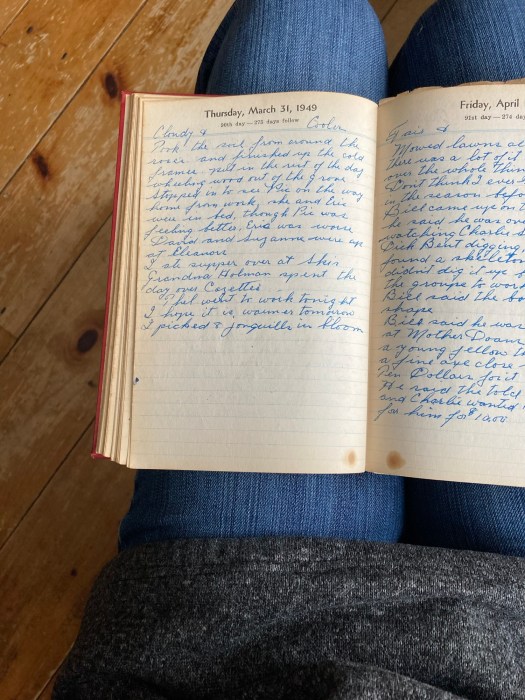 Thursday, March 31, 1949
90th day—275 days follow
Cloudy & Cooler
Took the soil from around the
roses and finished up the cold
frame. put in the rest of the day
wheeling wood out of the grove
Stopped in to see Pie on the way
home from work, she and Eric
were in bed, though Pie was
feeling better, Eric was worse
David and Suzanne were up
at Eleanors
I ate supper over at Shes
Grandma Holman spent the
day over Cozettes
Phil went to work tonight
I hope it is, warmer tomorrow
I picked 8 jonquills in bloom
Friday, April
91st day—274 day
Fair &
Mowed lawns al
there was a lot of it
over the whole thin
Dont think I ever
in the season befo
Bill came up on
he said he was on
watching Charlie S
Dick Bent digging
found a skeleton
didn't dig it up
the groups to wor
Bill said the bo
shape
Bill said he was
at Mother Doans
a young fellow
a fine axe close
Ten Dollars for it
He said the told
and Charlie wanted
for him for $10.00